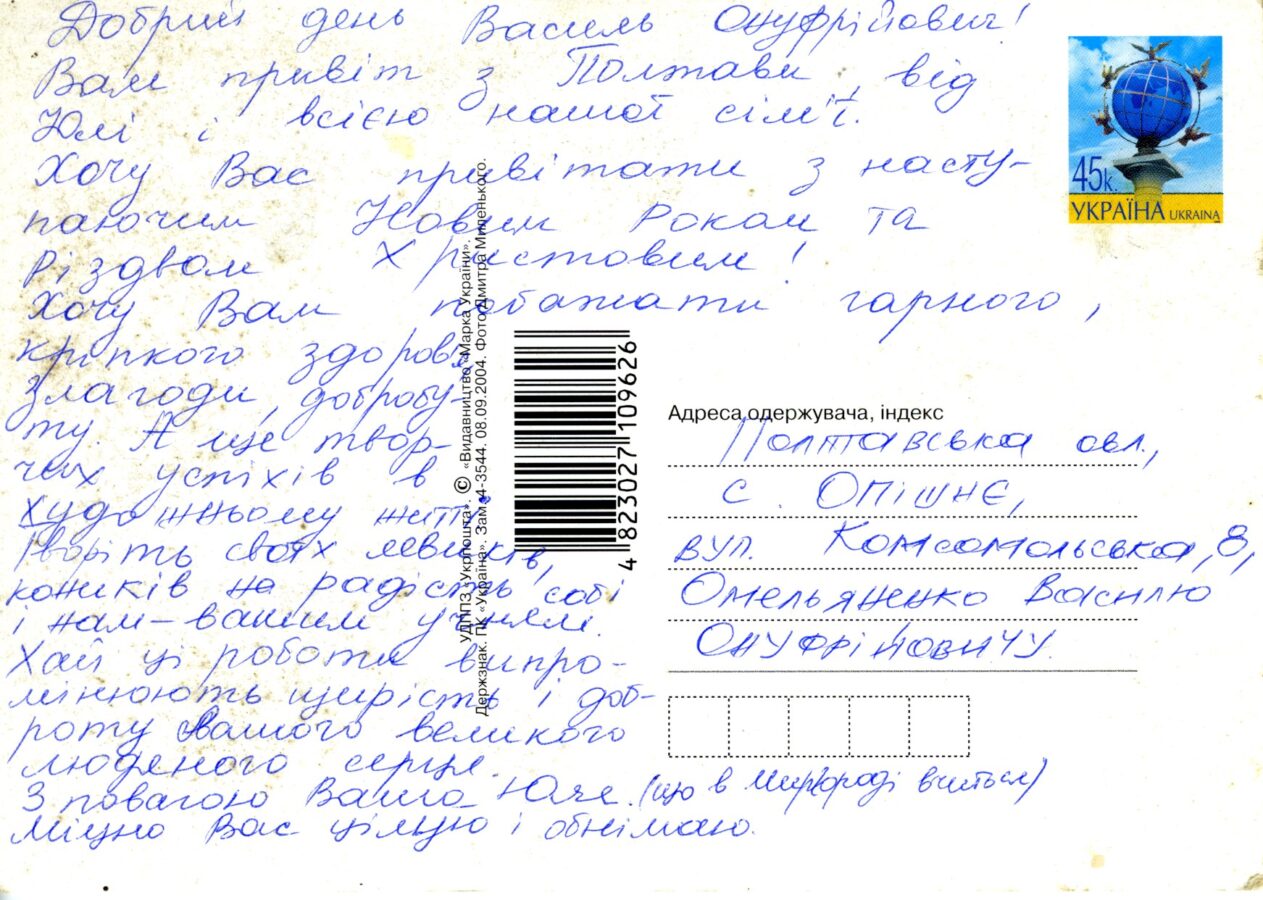 Добрий день Василь Онуфрійович!
Вам привіт з Полтави, від
Юлі і всією нашої сім'ї.
Хочу Вас привітати з насту-
паючим Новим Роком та
Різдвом Христовим!
Хочу Вам побажати гарного,
кріпкого здоров'я
злагоди, добробу-
ту. А ще твор-
чих успіхів в
художньому житті.
Творіть своїх левиків,
коників на радість собі
і нам-вашим учням.
Хай ці роботи випро-
мінюють щирість і доб-
роту Вашого великого
людяного серця.
З повагою Ваша Юля. (що в Миргороді вчиться)
Міцно Вас цілую і обнімаю.
45к.
УКРАЇНА UKRAINA
УДППЗ «Укрпошта». © «Видавництво «Марка України».
Держзнак. ПК «Україна». Зам. 4-3544. 08.09.2004. Фото Дмитра Миленького.
4 823027 109626
Адреса одержувача, індекс
Полтавська обл.,
с Опішнє,
вул. Комсомольська, 8,
Омельяненко Василю
Онуфрійовичу.